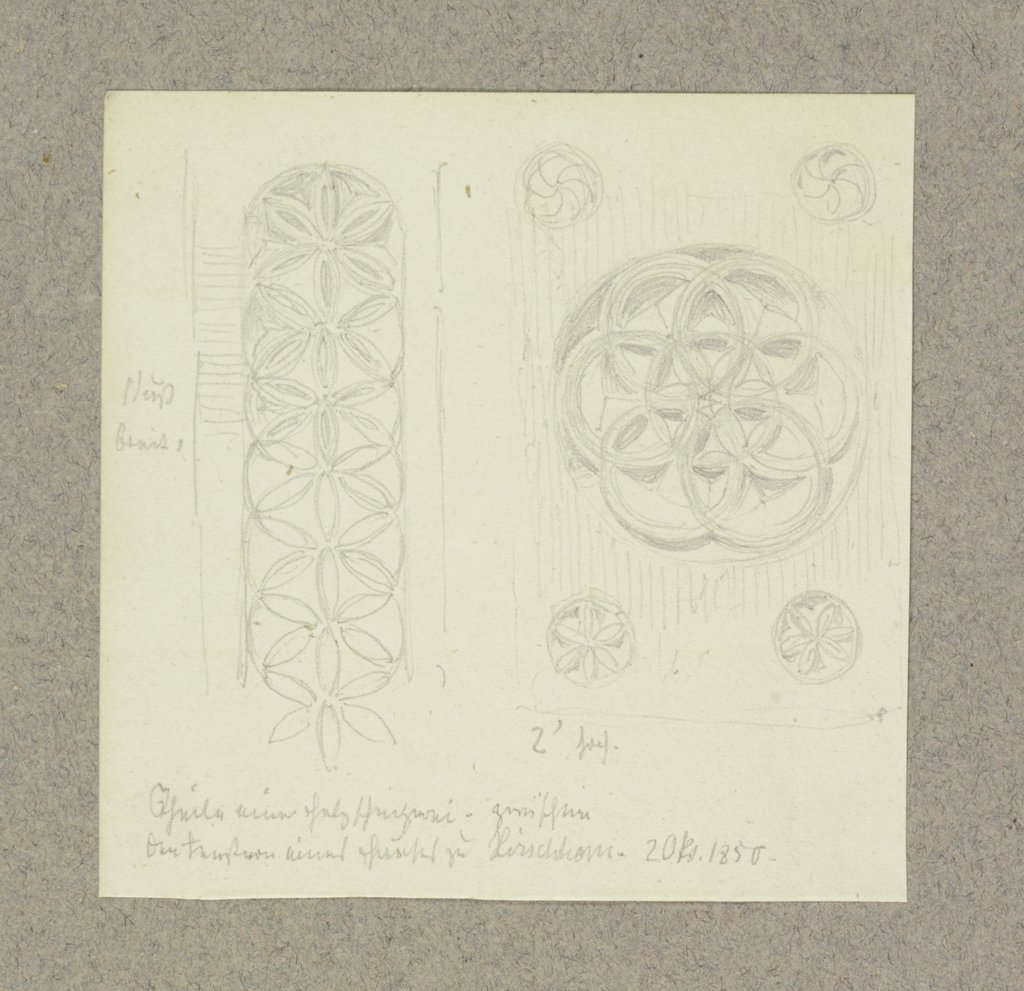 1 Fuß
breit.
2' hoch.
Theile einer Holzschnitzerei - zwischen
den Fenstern eines Hauses zu Hirschhorn. 2 Okt. 1850.